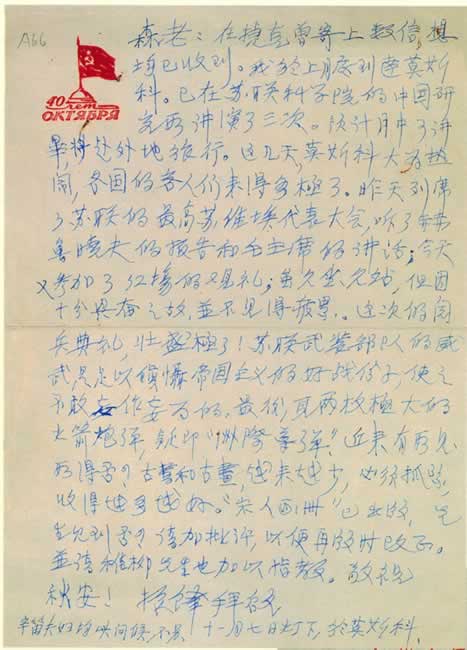 A66
森老：在捷克曾寄上数信，想
均已收到。我於上月底到莫斯
科。已在苏联科学院的中国研
究所讲演了三次。预计月中了讲
40 лет
ОКТЯБРЯ
毕将赴外地旅行。这几天，莫斯科大为热
闹，各国的客人们来得多極了。昨天列席
了苏联的最高苏维埃代表大会，听了赫
鲁晓夫的报告和毛主席的讲话；今天
又参加了红場的观礼；虽久坐久站，但因
十分興奋之故，並不見得疲累。这次的阅
兵典礼，壮盛極了！苏联武装部队的威
武是足以镇懾帝国主义的好战份子，使之
不敢妄作妄为的。最后，有两枚極大的
火箭炮弹，疑即“洲際导弹”。近来有所見
所得否？古書和古畫，越来越少，必须抓紧，
收得越多越好。“宋人画册”已出版，先
生見到否？请加批评，以便再版时改正。
並请稚柳先生也加以指教。敬祝
秋安！ 振铎拜啓
辛笛夫妇均此问候，不另 十一月七日灯下，於莫斯科